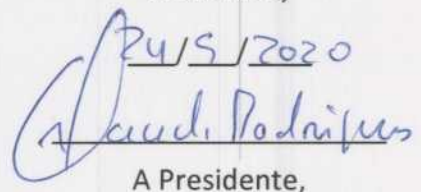 24/5/2020
Rodrigues
A Presidente,